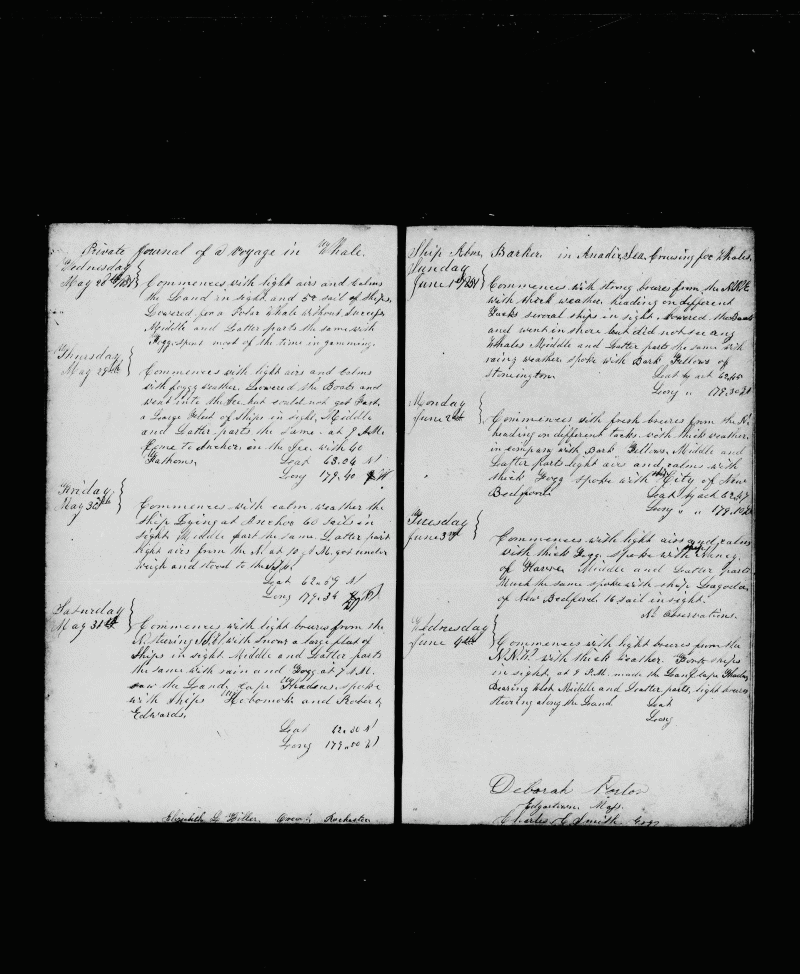 Private Journal of a Voyage in Whale
Wednesday
May 28th 1851 Commences with light airs and Calms
the Land in sight and 50 sail of Ships.
Lowered for a Polar Whale without success
Middle and Latter parts the same with
Fogg. spent most of the time in gamming.
Thursday
May 29th Commences with light airs and Calms
with foggy weather. Lowered the Boats and
went into the Ice but could not get fast,
a Large Fleet of Ships in sight. Middle
and Latter parts the same. at 9 A.M.
Come to Anchor in the Ice with 40
Fathoms. Lat 63.04 N
Long 179.40 W
Friday
May 30th Commences with calm weather the
Ship Lying at Anchor 60 sails in
sight Middle part the same. Latter part
light airs from the N. at 10 A.M. got under
weigh and stood to the
Lat 62.59 N
Long 179.34
Saturday
May 31st Commences with light breezes from the
N. steering with Snow a large fleet of
Ships in sight. Middle and Latter parts
the same with rain and Fogg. at 7 A.M.
saw the Land. Cape Thadeus. spoke
with Ships Hobomok and Robert
Edwards.
Lat 62.30 N
Long 179.00
Elizabeth L Hiller Rochester
Ship Abm. Barker in Anadir Sea Cruising for Whales.
Sunday
June 1st 1851 Commences with strong breezes from the NNE
with thick weather heading on different
Tacks several ships in sight. Lowered the Boats
and went in shore but did not see any
Whales Middle and Latter parts the same with
rainy weather spoke with Bark Fellows of
Stonington Lat by act 62.45
Long " 178.30
Monday
June 2nd Commences with fresh breezes from the N.
heading on different tacks. with thick weather.
in company with Bark Fellows. Middle and
Latter parts light airs and calms with
thick Fogg spoke with Ship City of New
Bedford. Lat by act 62.47
Long " " 179.10
Tuesday
June 3rd Commences with light airs and calms
with thick Fogg. spoke with Ship Nancy
of Havre Middle and Latter parts
Much the same spoke with Ship Lagoda
of New Bedford. 16 sail in sight.
No Observations.
Wednesday
June 4th Commences with light breezes from the
N.N.W. with thick weather. Four ships
in sight, at 8 P.M. made the Land Cape Thadeus
Bearing Middle and Latter parts, light breezes
steering along the Land. Lat
Long
Deborah
Edgartown Mass.
Charles E Smith